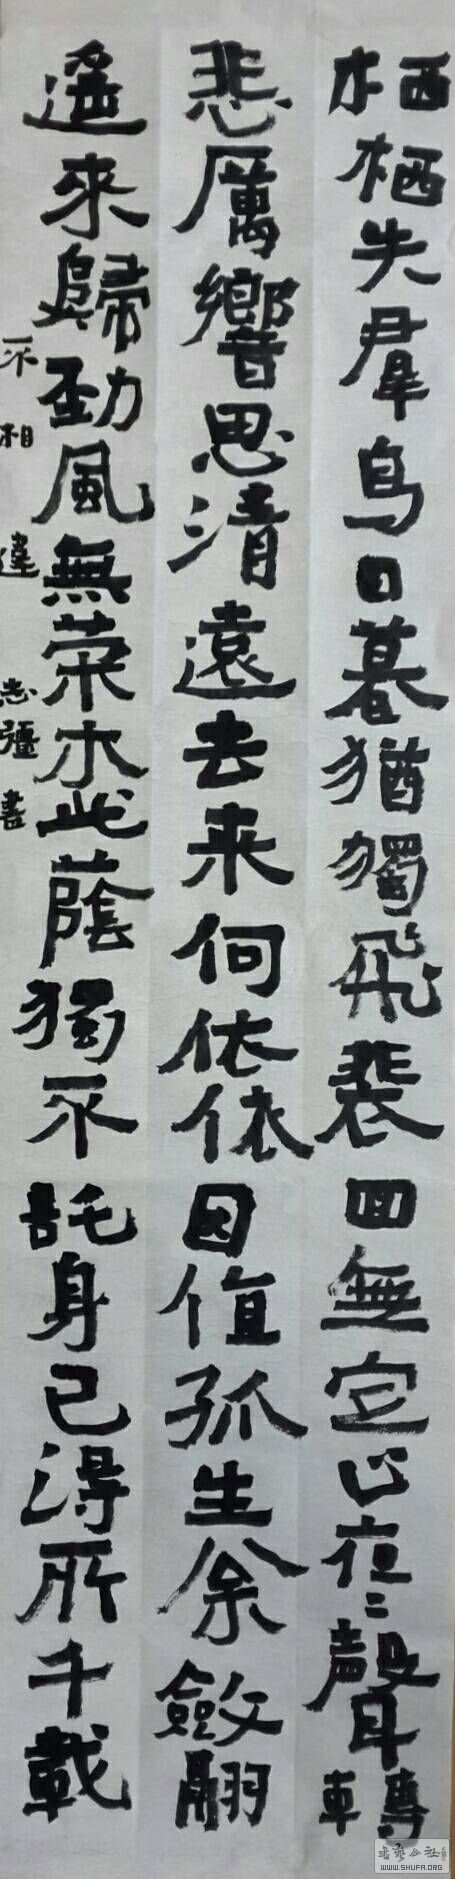 栖栖失羣鳥日暮猶獨飛裴回無定止夜二聲轉
悲厲響思清遠去来何依依因值孤生余斂翮
遥來歸勁風無荣木此蔭獨不託身已得所千載
不相違志彊書
书艺公社
WWW.SHUFA.ORG